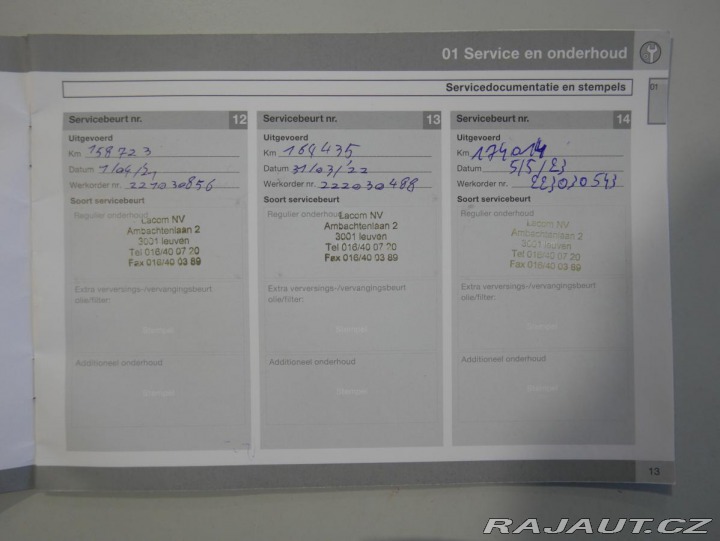 01 Service en onderhoud
Servicedocumentatie en stempels
01
Servicebeurt nr. 12
Uitgevoerd
Km 158723
Datum 1/04/21
Werkorder nr. 221030856
Soort servicebeurt
Regulier onderhoud
Lacom NV
Ambachtenlaan 2
3001 leuven
Tel 016/40 07 20
Fax 016/40 03 89
Extra verversings-/vervangingsbeurt
olie/filter:
Stempel
Additioneel onderhoud
Stempel
Servicebeurt nr. 13
Uitgevoerd
Km 169435
Datum 31/03/22
Werkorder nr. 222030488
Soort servicebeurt
Regulier onderhoud
Lacom NV
Ambachtenlaan 2
3001 leuven
Tel 016/40 07 20
Fax 016/40 03 89
Extra verversings-/vervangingsbeurt
olie/filter:
Stempel
Additioneel onderhoud
Stempel
Servicebeurt nr. 14
Uitgevoerd
Km 174014
Datum 5/5/23
Werkorder nr. 223030543
Soort servicebeurt
Regulier onderhoud
Lacom NV
Ambachtenlaan 2
3001 leuven
Tel 016/40 07 20
Fax 016/40 03 89
Extra verversings-/vervangingsbeurt
olie/filter:
Stempel
Additioneel onderhoud
Stempel
13
RAJAUT.CZ